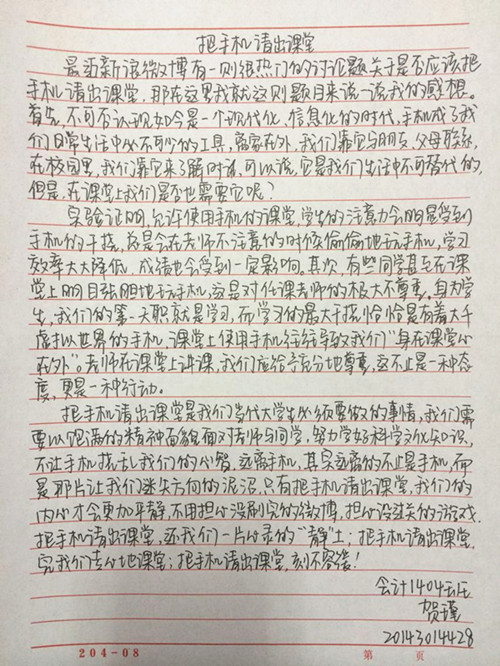 把手机请出课堂
最近新浪微博有一则很热门的讨论题关于是否应该把
手机请出课堂，那在这里我就这则题目来说一说我的感想。
首先，不可否认现如今是一个现代化，信息化的时代，手机成了我
们日常生活中必不可少的工具，离家在外，我们靠它与朋友，父母联系，
在校园里，我们靠它来了解时讯，可以说，它是我们生活中不可替代的，
但是，在课堂上我们是否也需要它呢？
实验证明，允许使用手机的课堂，学生的注意力会明显受到
手机的干扰，总是会在老师不注意的时候偷偷地玩手机，学习
效率大大降低，成绩也会受到一定影响。其次，有些同学甚至在课
堂上明目张胆地玩手机，这是对任课老师的极大不尊重。身为学
生，我们的第一天职就是学习，而学习的最大干扰恰恰是有着大千
虚拟世界的手机，课堂上使用手机往往导致我们“身在课堂心
在外”。老师在课堂上讲课，我们应给予充分地尊重，这不止是一种态
度，更是一种行动。
把手机请出课堂是我们当代大学生必须要做的事情，我们需
要以饱满的精神面貌面对老师与同学，努力学好科学文化知识，
不让手机扰乱我们的心智，远离手机，其实远离的不止是手机，而
是那片让我们迷失方向的泥沼，只有把手机请出课堂，我们的
内心才会更加平静，不用担心没刷完的微博，担心没过关的游戏。
把手机请出课堂，还我们一片心灵的“静”土；把手机请出课堂，
完我们专心地课堂；把手机请出课堂，刻不容缓！
会计1404班
贺瑾
20143014428
204-08 第 页